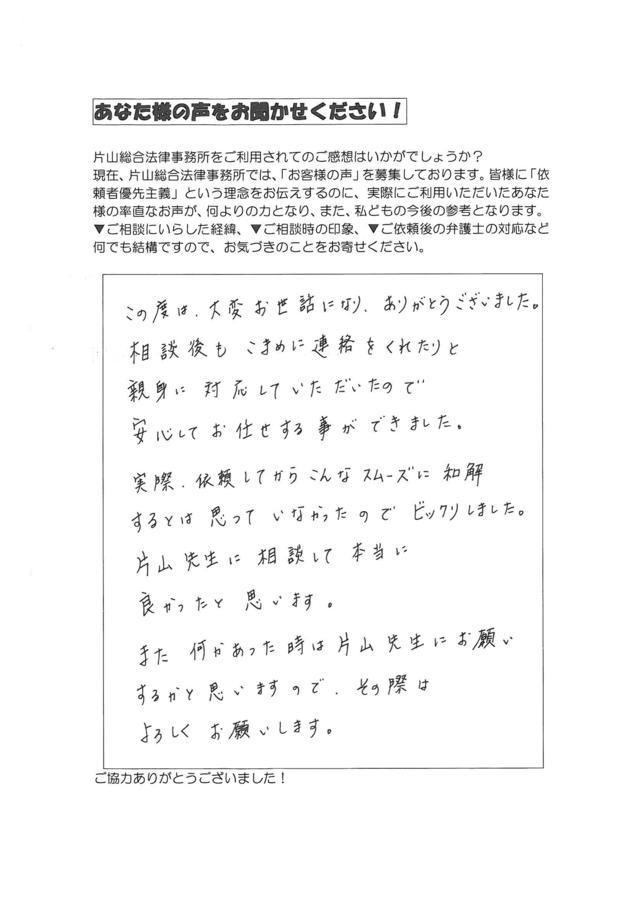 あなた様の声をお聞かせください！
片山総合法律事務所をご利用されてのご感想はいかがでしょうか？
現在、片山総合法律事務所では、「お客様の声」を募集しております。皆様に「依
頼者優先主義」という理念をお伝えするのに、実際にご利用いただいたあなた
様の率直なお声が、何よりの力となり、また、私どもの今後の参考となります。
▼ご相談にいらした経緯、▼ご相談時の印象、▼ご依頼後の弁護士の対応など
何でも結構ですので、お気づきのことをお寄せください。
この度は、大変お世話になり、ありがとうございました。
相談後も こまめに連絡をくれたりと
親身に対応していただいたので
安心してお任せする事ができました。
実際、依頼してからこんなスムーズに和解
するとは思っていなかったのでビックリしました。
片山先生に相談して本当に
良かったと思います。
また何かあった時は片山先生にお願い
するかと思いますので、その際は
よろしくお願いします。
ご協力ありがとうございました！